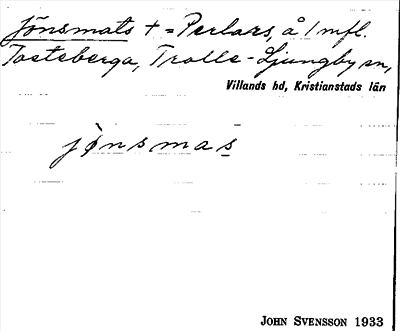 Jönsmats + = Perlars, å 1 mfl.
Tosteberga, Trolle-Ljungby sn,
Villands hd, Kristianstads län
jònsmas
JOHN SVENSSON 1933